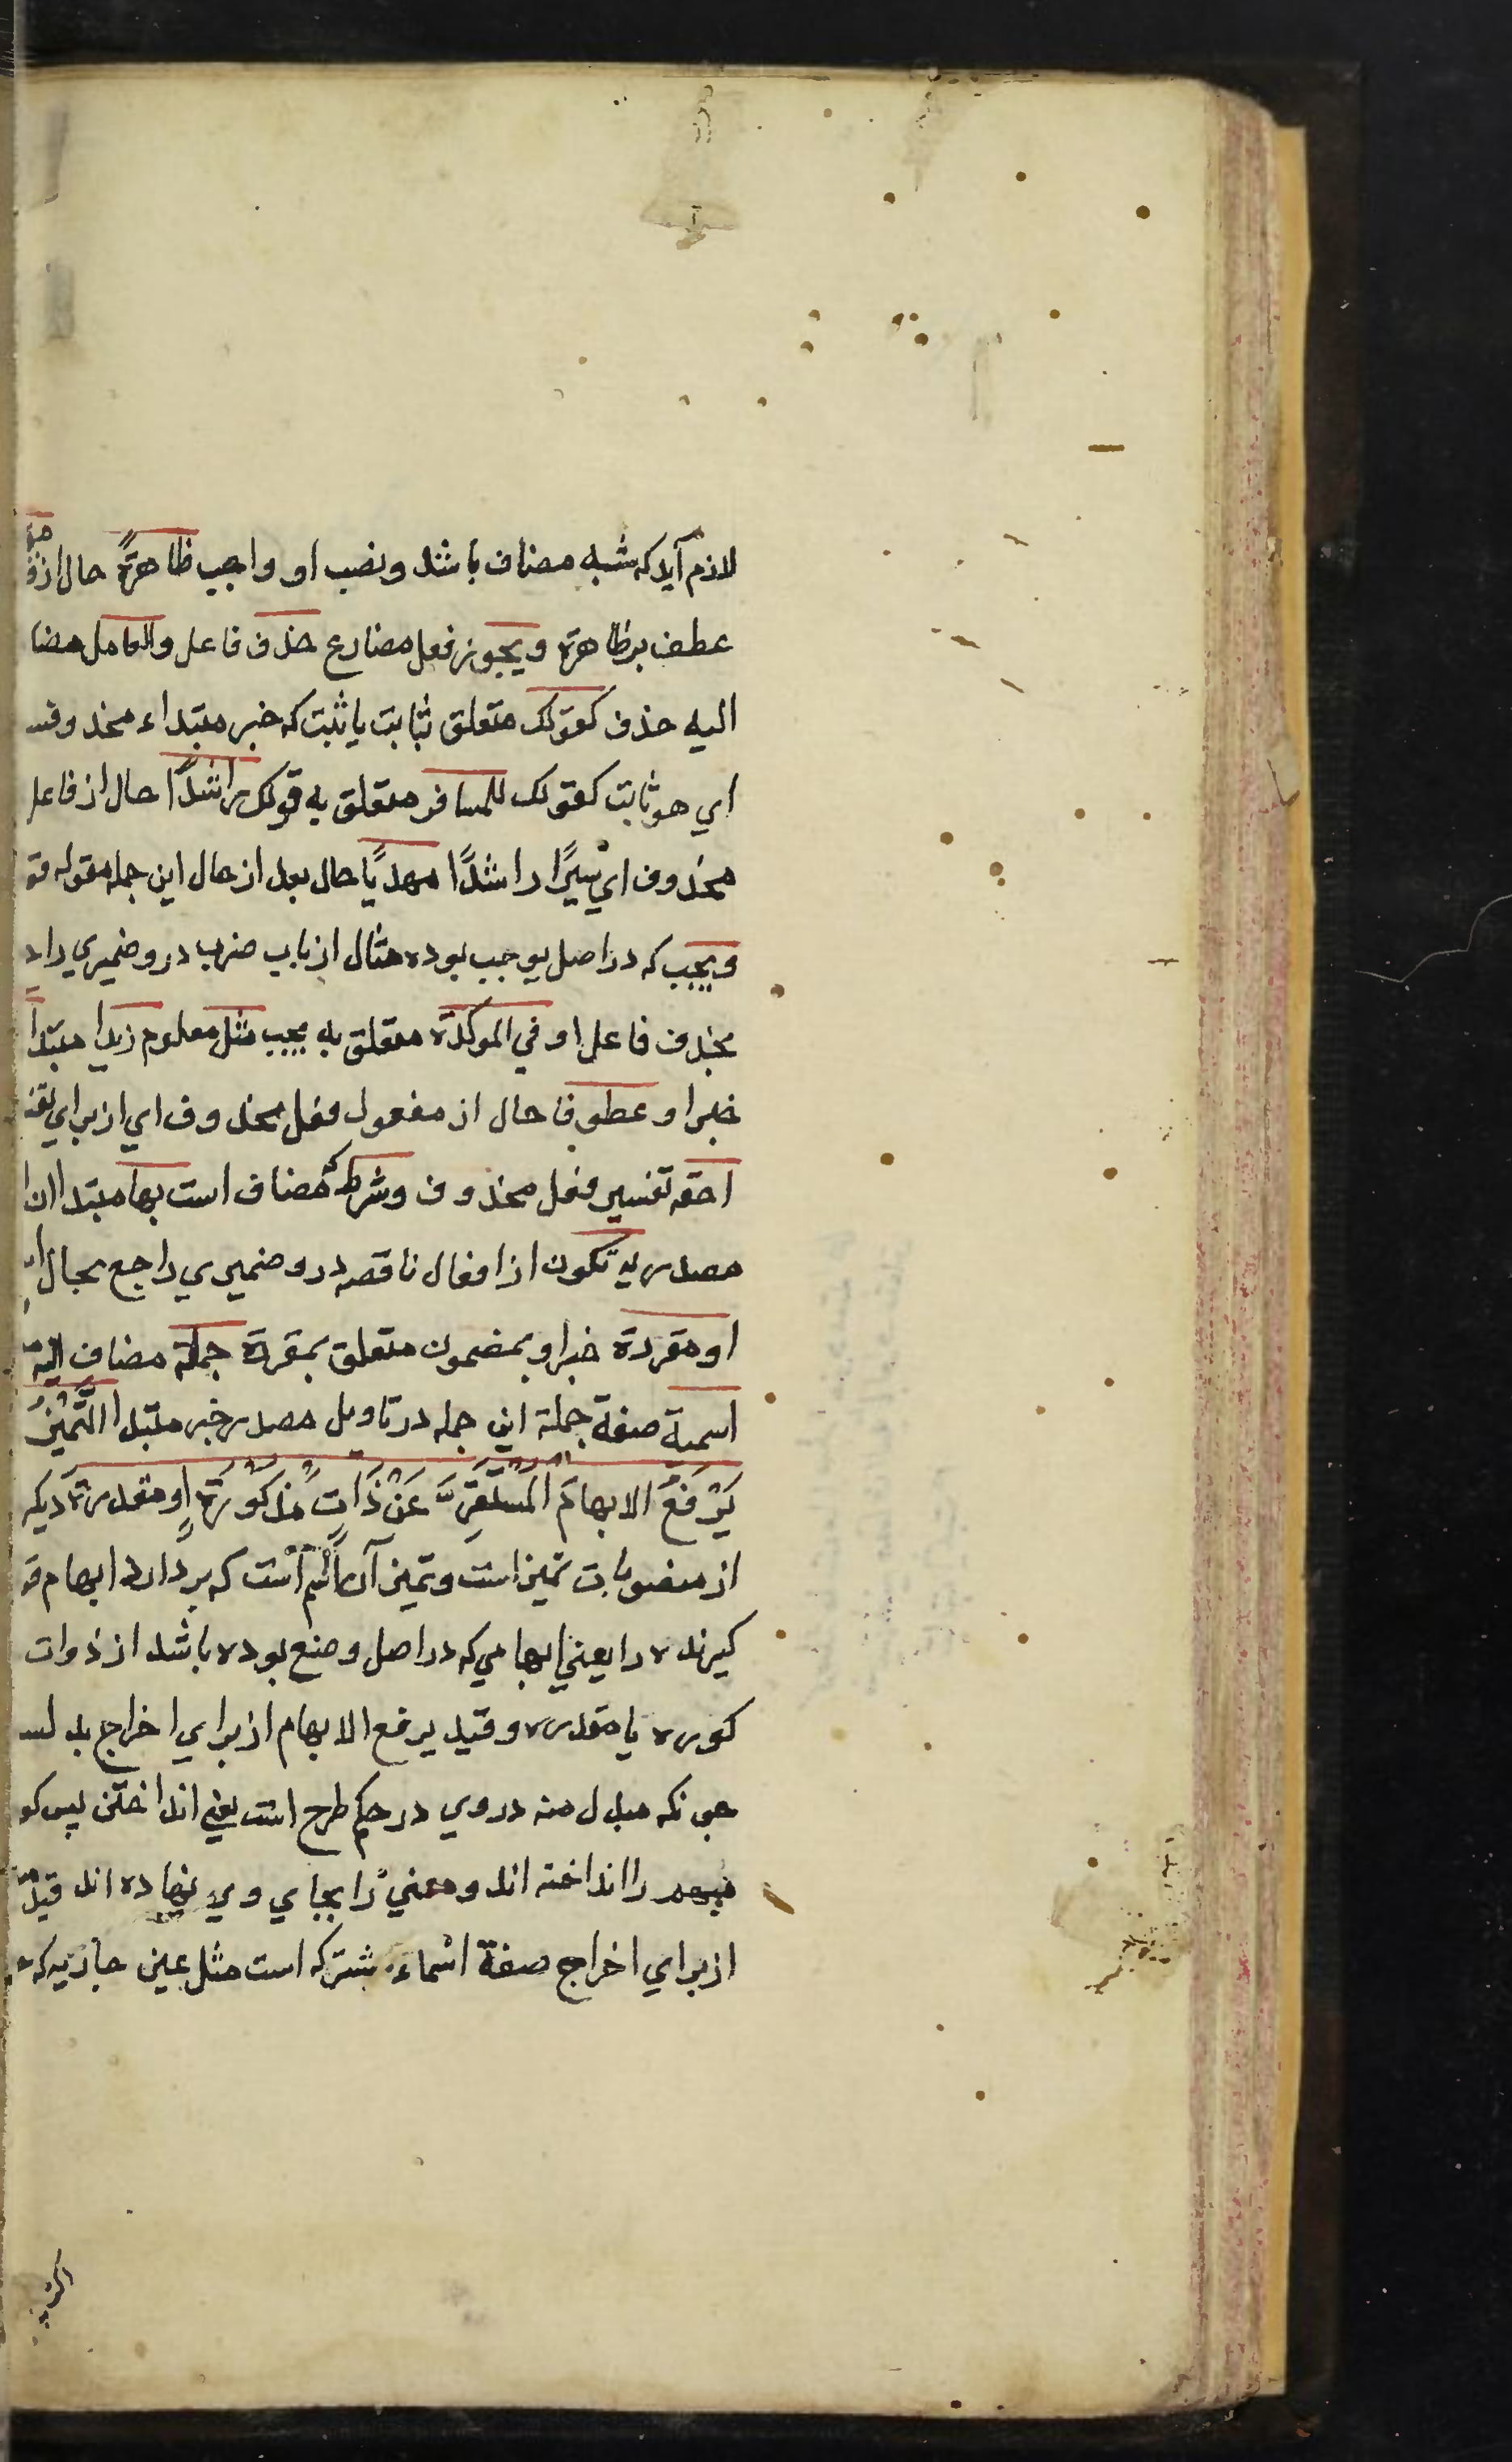 لازم آید که شبه مضاف باشد ونصب او واجب ظاهرةً حال از
عطف بر ظاهرة ویجوز فعل مضارع حذف فاعل والعامل مضا
الیه حذف کقولک متعلق بثابت یا ثبت که خبر مبتداء محذوفـ
اي هو ثابت کقولک للمسافر متعلق به قولک راشدًا حال از فاعل
محذوف اي سیرًا راشدًا مهدیًا حال بعد از حال این جمله مقوله قو
ویجب که در اصل یوجب بوده مثال از باب ضرب درو ضمیري را
بحذف فاعل او في الموکدة متعلق به یجب مثل معلوم زیدا مبتدا
خبر او عطوفا حال از مفعول فعل محذوف اي از براي
احقه تفسیر فعل محذوف وشرط مضاف است بها مبتدا ان
مصدریه تکون از افعال ناقصه درو ضمیري راجع بحال
او مقررة خبر او بمضمون متعلق بمقررة جملة مضاف الیه
اسمیة صفة جملة این جمله در تاویل مصدر خبر مبتدا التَّمْیِیْزُ
یَرْفَعُ الابهامَ المُسْتَقِرَّ عَنْ ذَاتٍ مَذکُوْرَةٍ او مقدرة دیکر
از منصوبات تمیز است وتمیز آن اسم است که بردارد ابهام قر
کیرنده را یعني ابهامي که در اصل وضع بوده باشد از ذوات
کوره یا مقدره وقید یرفع الابهام از براي اخراج بدلـ
جونکه مبدل منه در وي در حکم طرح است یعني انداختن پس کو
را انداخته اند ومعني را بجاي وي نهاده اند قید
از براي اخراج صفة اسماء مشترکه است مثل عین جاریه که